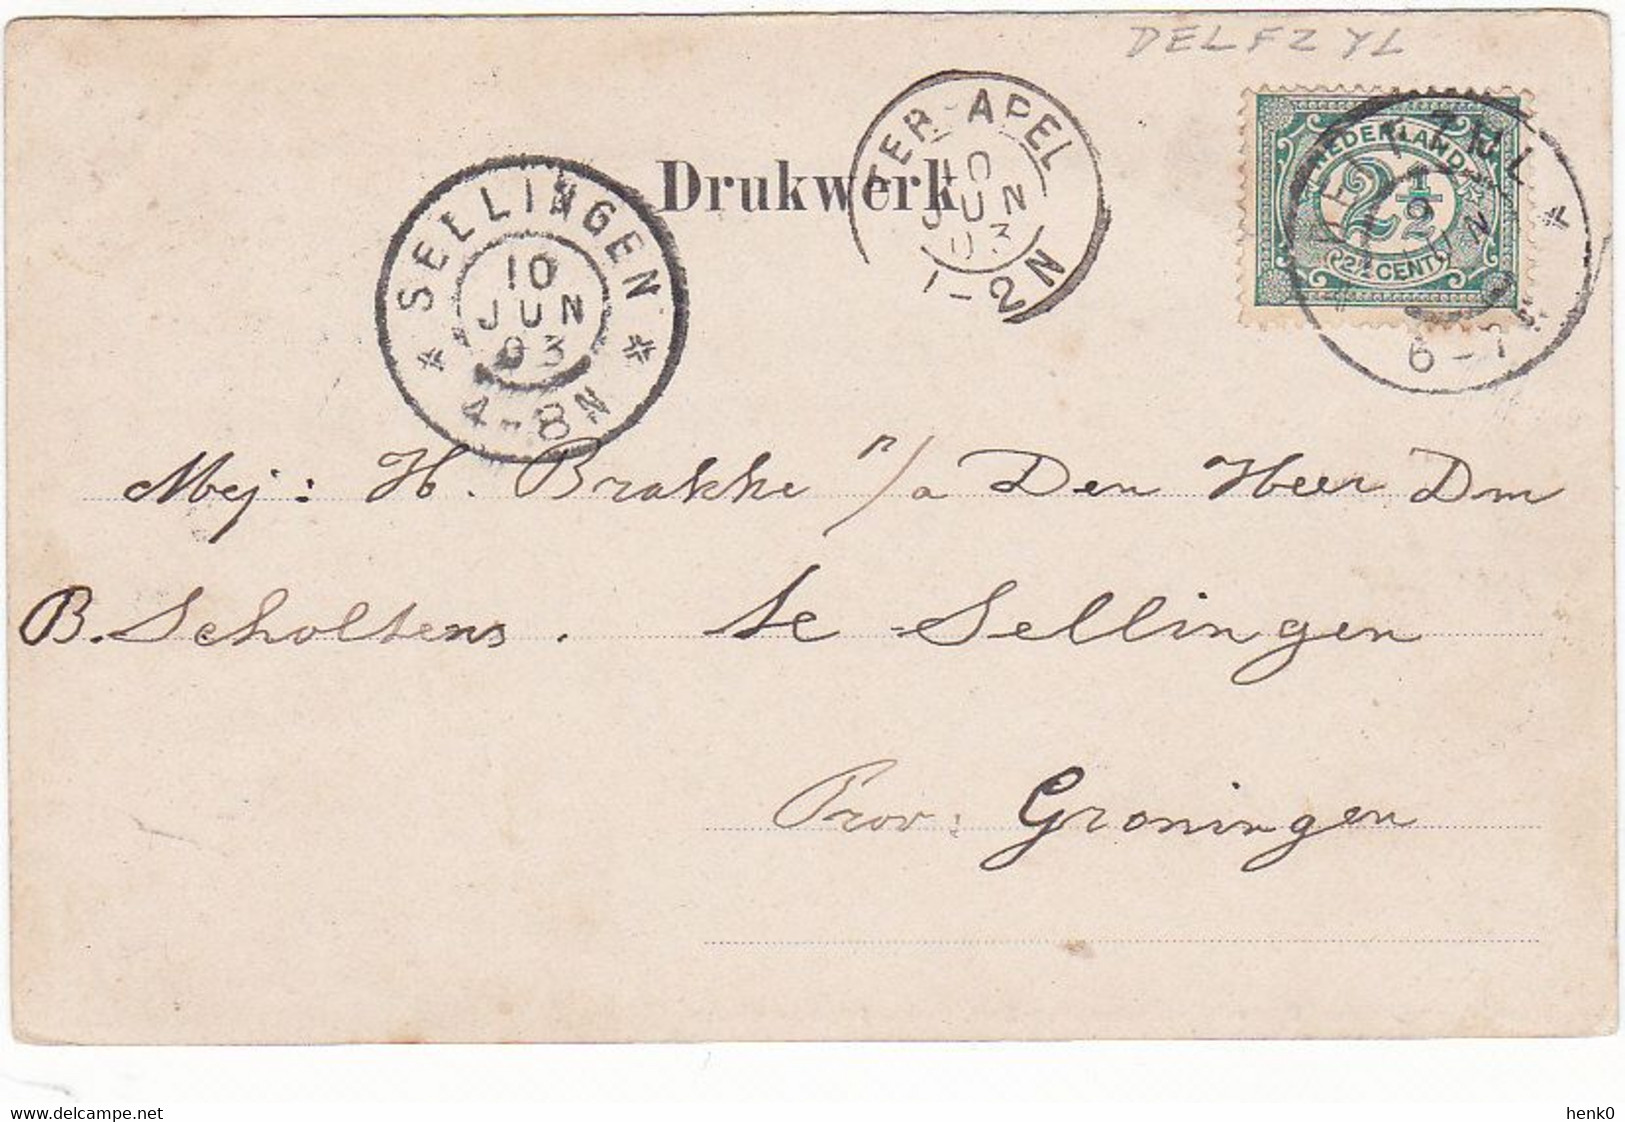 DELFZYL
Drukwerk
SELLINGEN
10
JUN
03
4-8N
TER-APEL
10
JUN
03
1-2N
NEDERLAND
2½
2½ CENT
DELFZIJL
JUN
6-7
Mej: H. Brakke p/a Den Heer Dm
B. Scholtens. te Sellingen
Prov: Groningen
www.delcampe.net
henk0